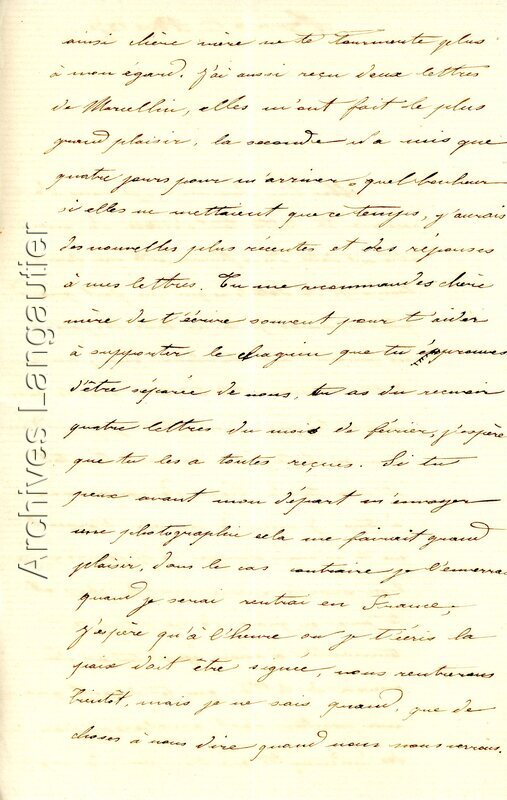 ainsi chère mère ne te tourmente plus
à mon égard. J'ai aussi reçu deux lettres
de Marcellin, elles m'ont fait le plus
grand plaisir, la seconde n'a mis que
quatre jours pour m'arriver, quel bonheur
si elles ne mettaient que ce temps, j'aurais
des nouvelles plus récentes et des réponses
à mes lettres. Tu me recommandes chère
mère de t'écrire souvent pour t'aider
à supporter le chagrin que tu éprouves
d'être séparée de nous, tu as du recevoir
quatre lettres du mois de février, j'espère
que tu les a toutes reçues. Si tu
peux avant mon départ m'envoyer
une photographie cela me fairait grand
plaisir, dans le cas contraire je l'enverrai
quand je serai rentrai en France,
J'espère qu'à l'heure ou je t'écris la
paix doit être signée, nous rentrerons
bientôt, mais je ne sais quand, que de
choses à nous dire quand nous nous verrons.
Archives Langautier